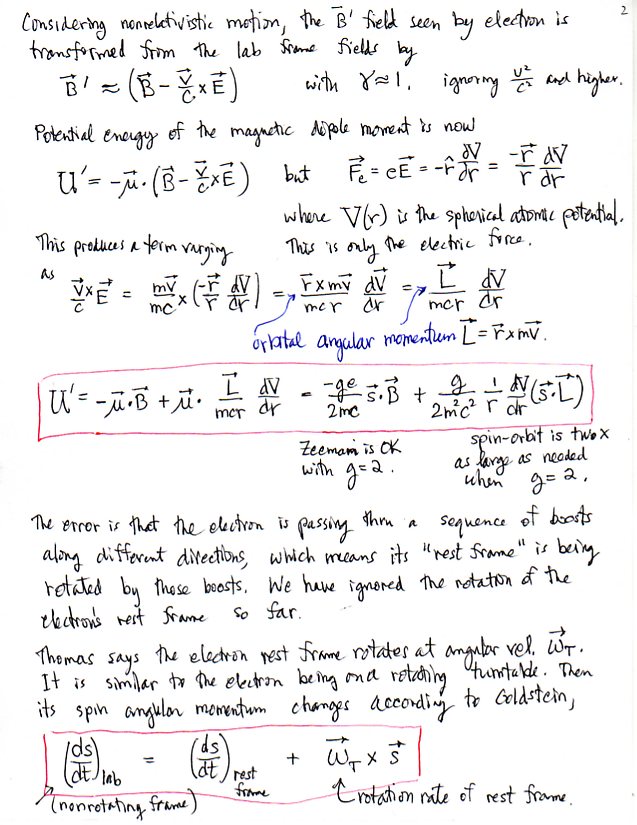 2
Considering nonrelativistic motion, the B⃗' field seen by electron is
transformed from the lab frame fields by
B⃗' ≈ (B⃗ - v⃗/c × E⃗) with γ≈1, ignoring v²/c² and higher.
Potential energy of the magnetic dipole moment is now
U' = -μ⃗·(B⃗ - v⃗/c × E⃗) but F⃗e = eE⃗ = -r̂ dV/dr = -r⃗/r dV/dr
where V(r) is the spherical atomic potential.
This produces a term varying This is only the electric force.
as v⃗/c × E⃗ = mv⃗/mc × (-r⃗/r dV/dr) = r⃗ × mv⃗/mcr dV⃗/dr = L⃗/mcr dV/dr
orbital angular momentum L⃗ = r⃗ × mv⃗.
U' = -μ⃗·B⃗ + μ⃗· L⃗/mcr dV/dr = -ge/2mc s⃗·B⃗ + g/2m²c² 1/r dV/dr (s⃗·L⃗)
Zeeman is OK
with g=2.
spin-orbit is two x
as large as needed
when g=2.
The error is that the electron is passing thru a sequence of boosts
along different directions, which means its "rest frame" is being
rotated by those boosts. We have ignored the rotation of the
electron's rest frame so far.
Thomas says the electron rest frame rotates at angular vel. ω⃗T.
It is similar to the electron being on a rotating turntable. Then
its spin angular momentum changes according to Goldstein,
(ds⃗/dt)lab = (ds⃗/dt)rest frame + ω⃗T × s⃗
(nonrotating frame) rotation rate of rest frame.